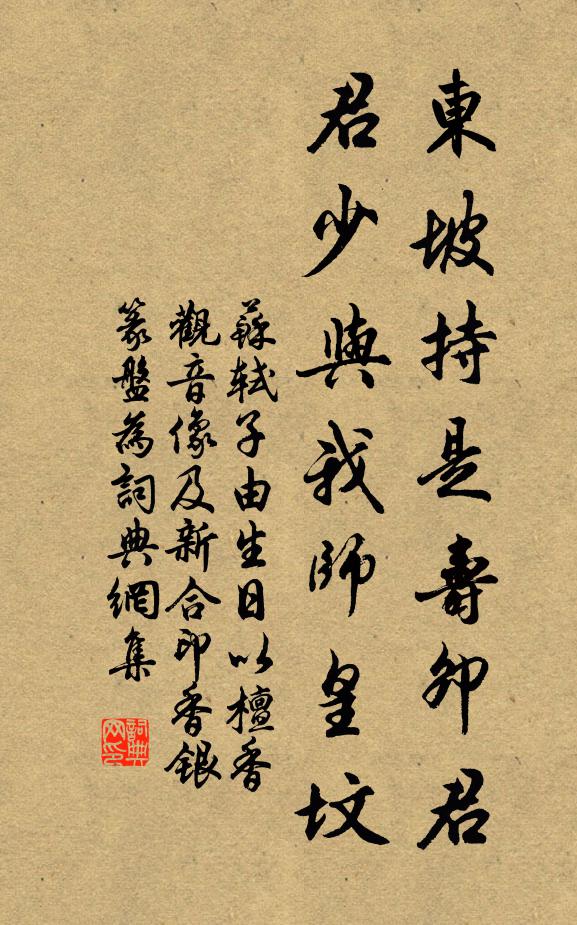 東坡持是壽卯君
君少與我師皇墳
蘇軾子由生日以檀香
觀音像及新合印香銀
篆盤為詞典網集
詞典网印